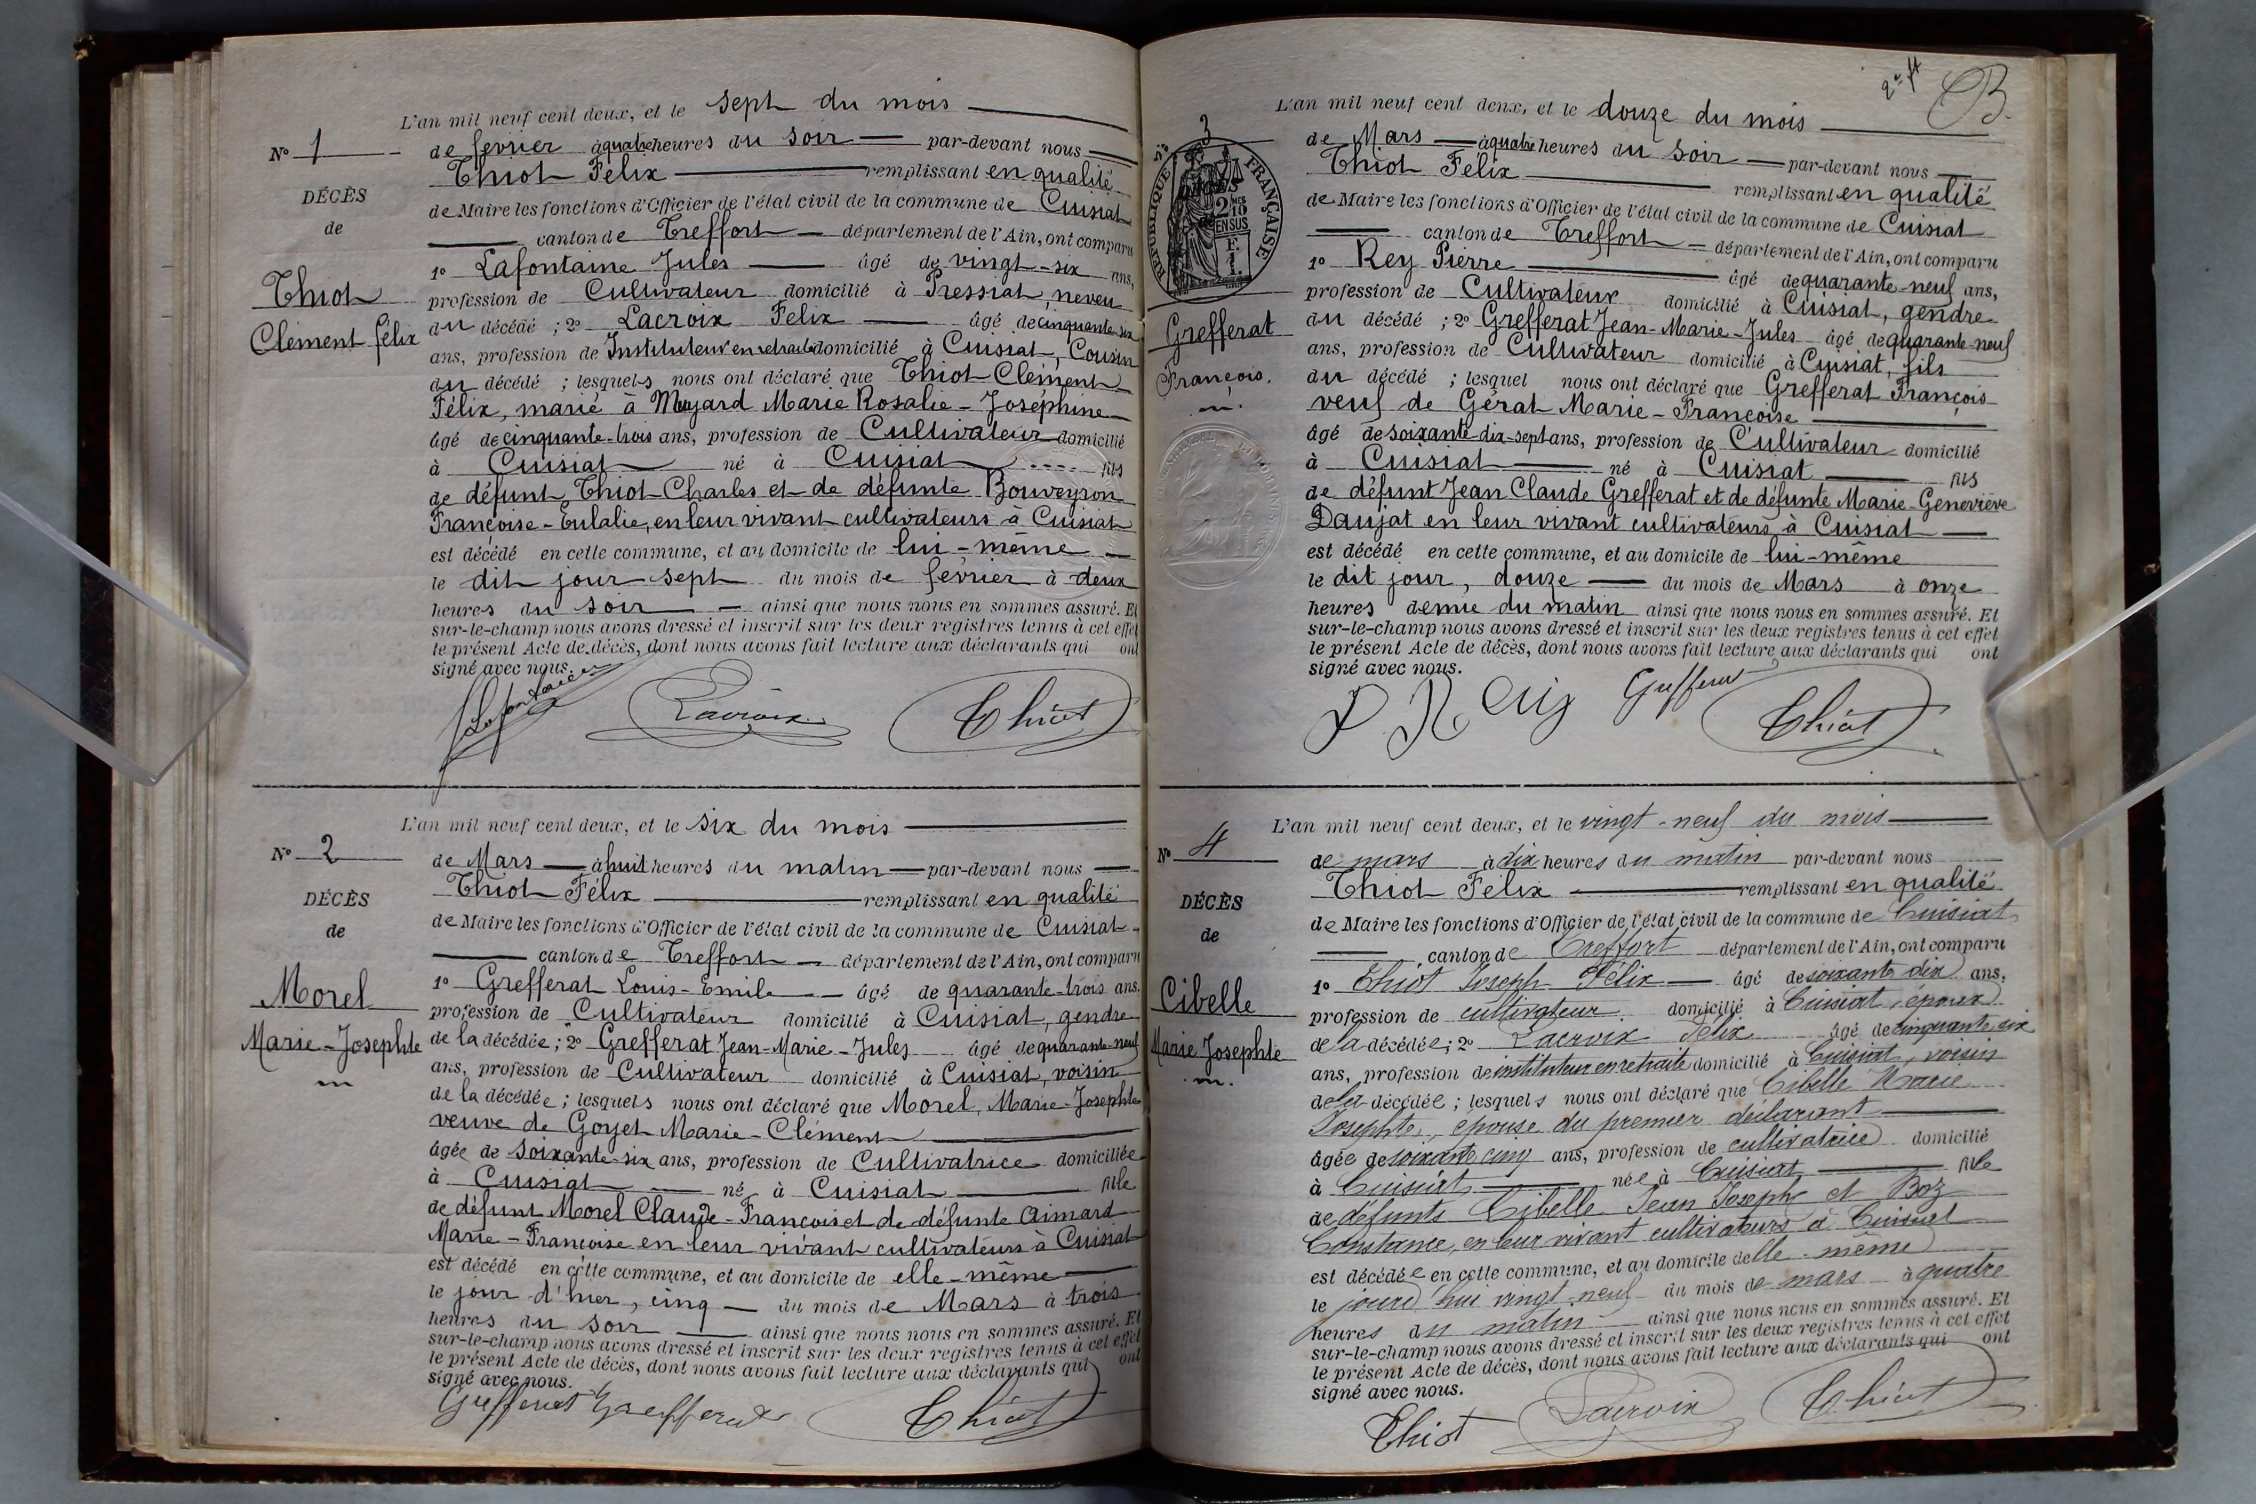 L'an mil neuf cent deux, et le sept du mois
No 1
de février à quatre heures du soir par-devant nous
Thiot Félix remplissant en qualité
DÉCÈS
de Maire les fonctions d'Officier de l'état civil de la commune de Cuisiat
de
canton de Treffort département de l'Ain, ont comparu
1o Lafontaine Jules âgé de vingt-six ans,
Thiot
profession de Cultivateur domicilié à Pressiat, neveu
Clément félix
du décédé ; 2o Lacroix Félix âgé de cinquante six
ans, profession de Instituteur en retraite domicilié à Cuisiat, Cousin
du décédé ; lesquels nous ont déclaré que Thiot Clément
Félix, marié à Muyard Marie Rosalie-Joséphine
âgé de cinquante-trois ans, profession de Cultivateur domicilié
à Cuisiat né à Cuisiat fils
de défunt Thiot Charles et de défunte Bouveyron
Françoise-Eulalie, en leur vivant cultivateurs à Cuisiat
est décédé en cette commune, et au domicile de lui-même
le dit jour sept du mois de février à deux
heures du soir ainsi que nous nous en sommes assuré. Et
sur-le-champ nous avons dressé et inscrit sur les deux registres tenus à cet effet
le présent Acte de décès, dont nous avons fait lecture aux déclarants qui ont
signé avec nous.
Lafontaine Lacroix Thiot
L'an mil neuf cent deux, et le six du mois
No 2
de Mars à huit heures du matin par-devant nous
Thiot Félix remplissant en qualité
DÉCÈS
de Maire les fonctions d'Officier de l'état civil de la commune de Cuisiat
de
canton de Treffort département de l'Ain, ont comparu
1o Grefferat Louis-Emile âgé de quarante-trois ans.
Morel
profession de Cultivateur domicilié à Cuisiat, gendre
Marie-Josephte
de la décédée ; 2o Grefferat Jean-Marie-Jules âgé de quarante-neuf
ans, profession de Cultivateur domicilié à Cuisiat, voisin
de la décédée ; lesquels nous ont déclaré que Morel, Marie-Josephte
veuve de Goyet Marie-Clément
âgée de soixante-six ans, profession de Cultivatrice domiciliée
à Cuisiat né à Cuisiat fille
de défunt Morel Claude-François et de défunte Aimard
Marie-Françoise en leur vivant cultivateurs à Cuisiat
est décédé en cette commune, et au domicile de elle-même
le jour d'hier, cinq du mois de Mars à trois
heures du soir ainsi que nous nous en sommes assuré. Et
sur-le-champ nous avons dressé et inscrit sur les deux registres tenus à cet effet
le présent Acte de décès, dont nous avons fait lecture aux déclarants qui ont
signé avec nous.
Grefferat Grefferat Thiot
2e ft B.
L'an mil neuf cent deux, et le douze du mois
No 3
de Mars à quatre heures du soir par-devant nous
Thiot Félix remplissant en qualité
RÉPUBLIQUE FRANÇAISE
2/10 EN SUS
de Maire les fonctions d'Officier de l'état civil de la commune de Cuisiat
canton de Treffort département de l'Ain, ont comparu
1o Rey Pierre âgé de quarante-neuf ans,
profession de Cultivateur domicilié à Cuisiat, gendre
Grefferat
du décédé ; 2o Grefferat Jean-Marie-Jules âgé de quarante-neuf
ans, profession de Cultivateur domicilié à Cuisiat, fils
François.
du décédé ; lesquel nous ont déclaré que Grefferat François
veuf de Gérat Marie-Françoise
âgé de soixante-dix-sept ans, profession de Cultivateur domicilié
à Cuisiat né à Cuisiat fils
de défunt Jean Claude Grefferat et de défunte Marie-Geneviève
Daujat en leur vivant cultivateurs à Cuisiat
est décédé en cette commune, et au domicile de lui-même
le dit jour, douze du mois de Mars à onze
heures demie du matin ainsi que nous nous en sommes assuré. Et
sur-le-champ nous avons dressé et inscrit sur les deux registres tenus à cet effet
le présent Acte de décès, dont nous avons fait lecture aux déclarants qui ont
signé avec nous.
P Rey Grefferat Thiot
L'an mil neuf cent deux, et le vingt-neuf du mois
No 4
de mars à dix heures du matin par-devant nous
Thiot Félix remplissant en qualité
DÉCÈS
de Maire les fonctions d'Officier de l'état civil de la commune de Cuisiat
de
canton de Treffort département de l'Ain, ont comparu
1o Thiot Joseph Félix âgé de soixante dix ans,
Cibelle
profession de cultivateur domicilié à Cuisiat, époux
Marie Josephte
de la décédée ; 2o Lacroix Félix âgé de cinquante six
ans, profession de instituteur en retraite domicilié à Cuisiat, voisin
de la décédée ; lesquels nous ont déclaré que Cibelle Marie
Josephte, épouse du premier déclarant
âgée de soixante cinq ans, profession de cultivatrice domicilié
à Cuisiat née à Cuisiat fille
de défunts Cibelle Jean Joseph et Boz
Constance, en leur vivant cultivateurs à Cuisiat
est décédée en cette commune, et au domicile d'elle-même
le jourd'hui vingt neuf du mois de mars à quatre
heures du matin ainsi que nous nous en sommes assuré. Et
sur-le-champ nous avons dressé et inscrit sur les deux registres tenus à cet effet
le présent Acte de décès, dont nous avons fait lecture aux déclarants qui ont
signé avec nous.
Thiot Lacroix Thiot